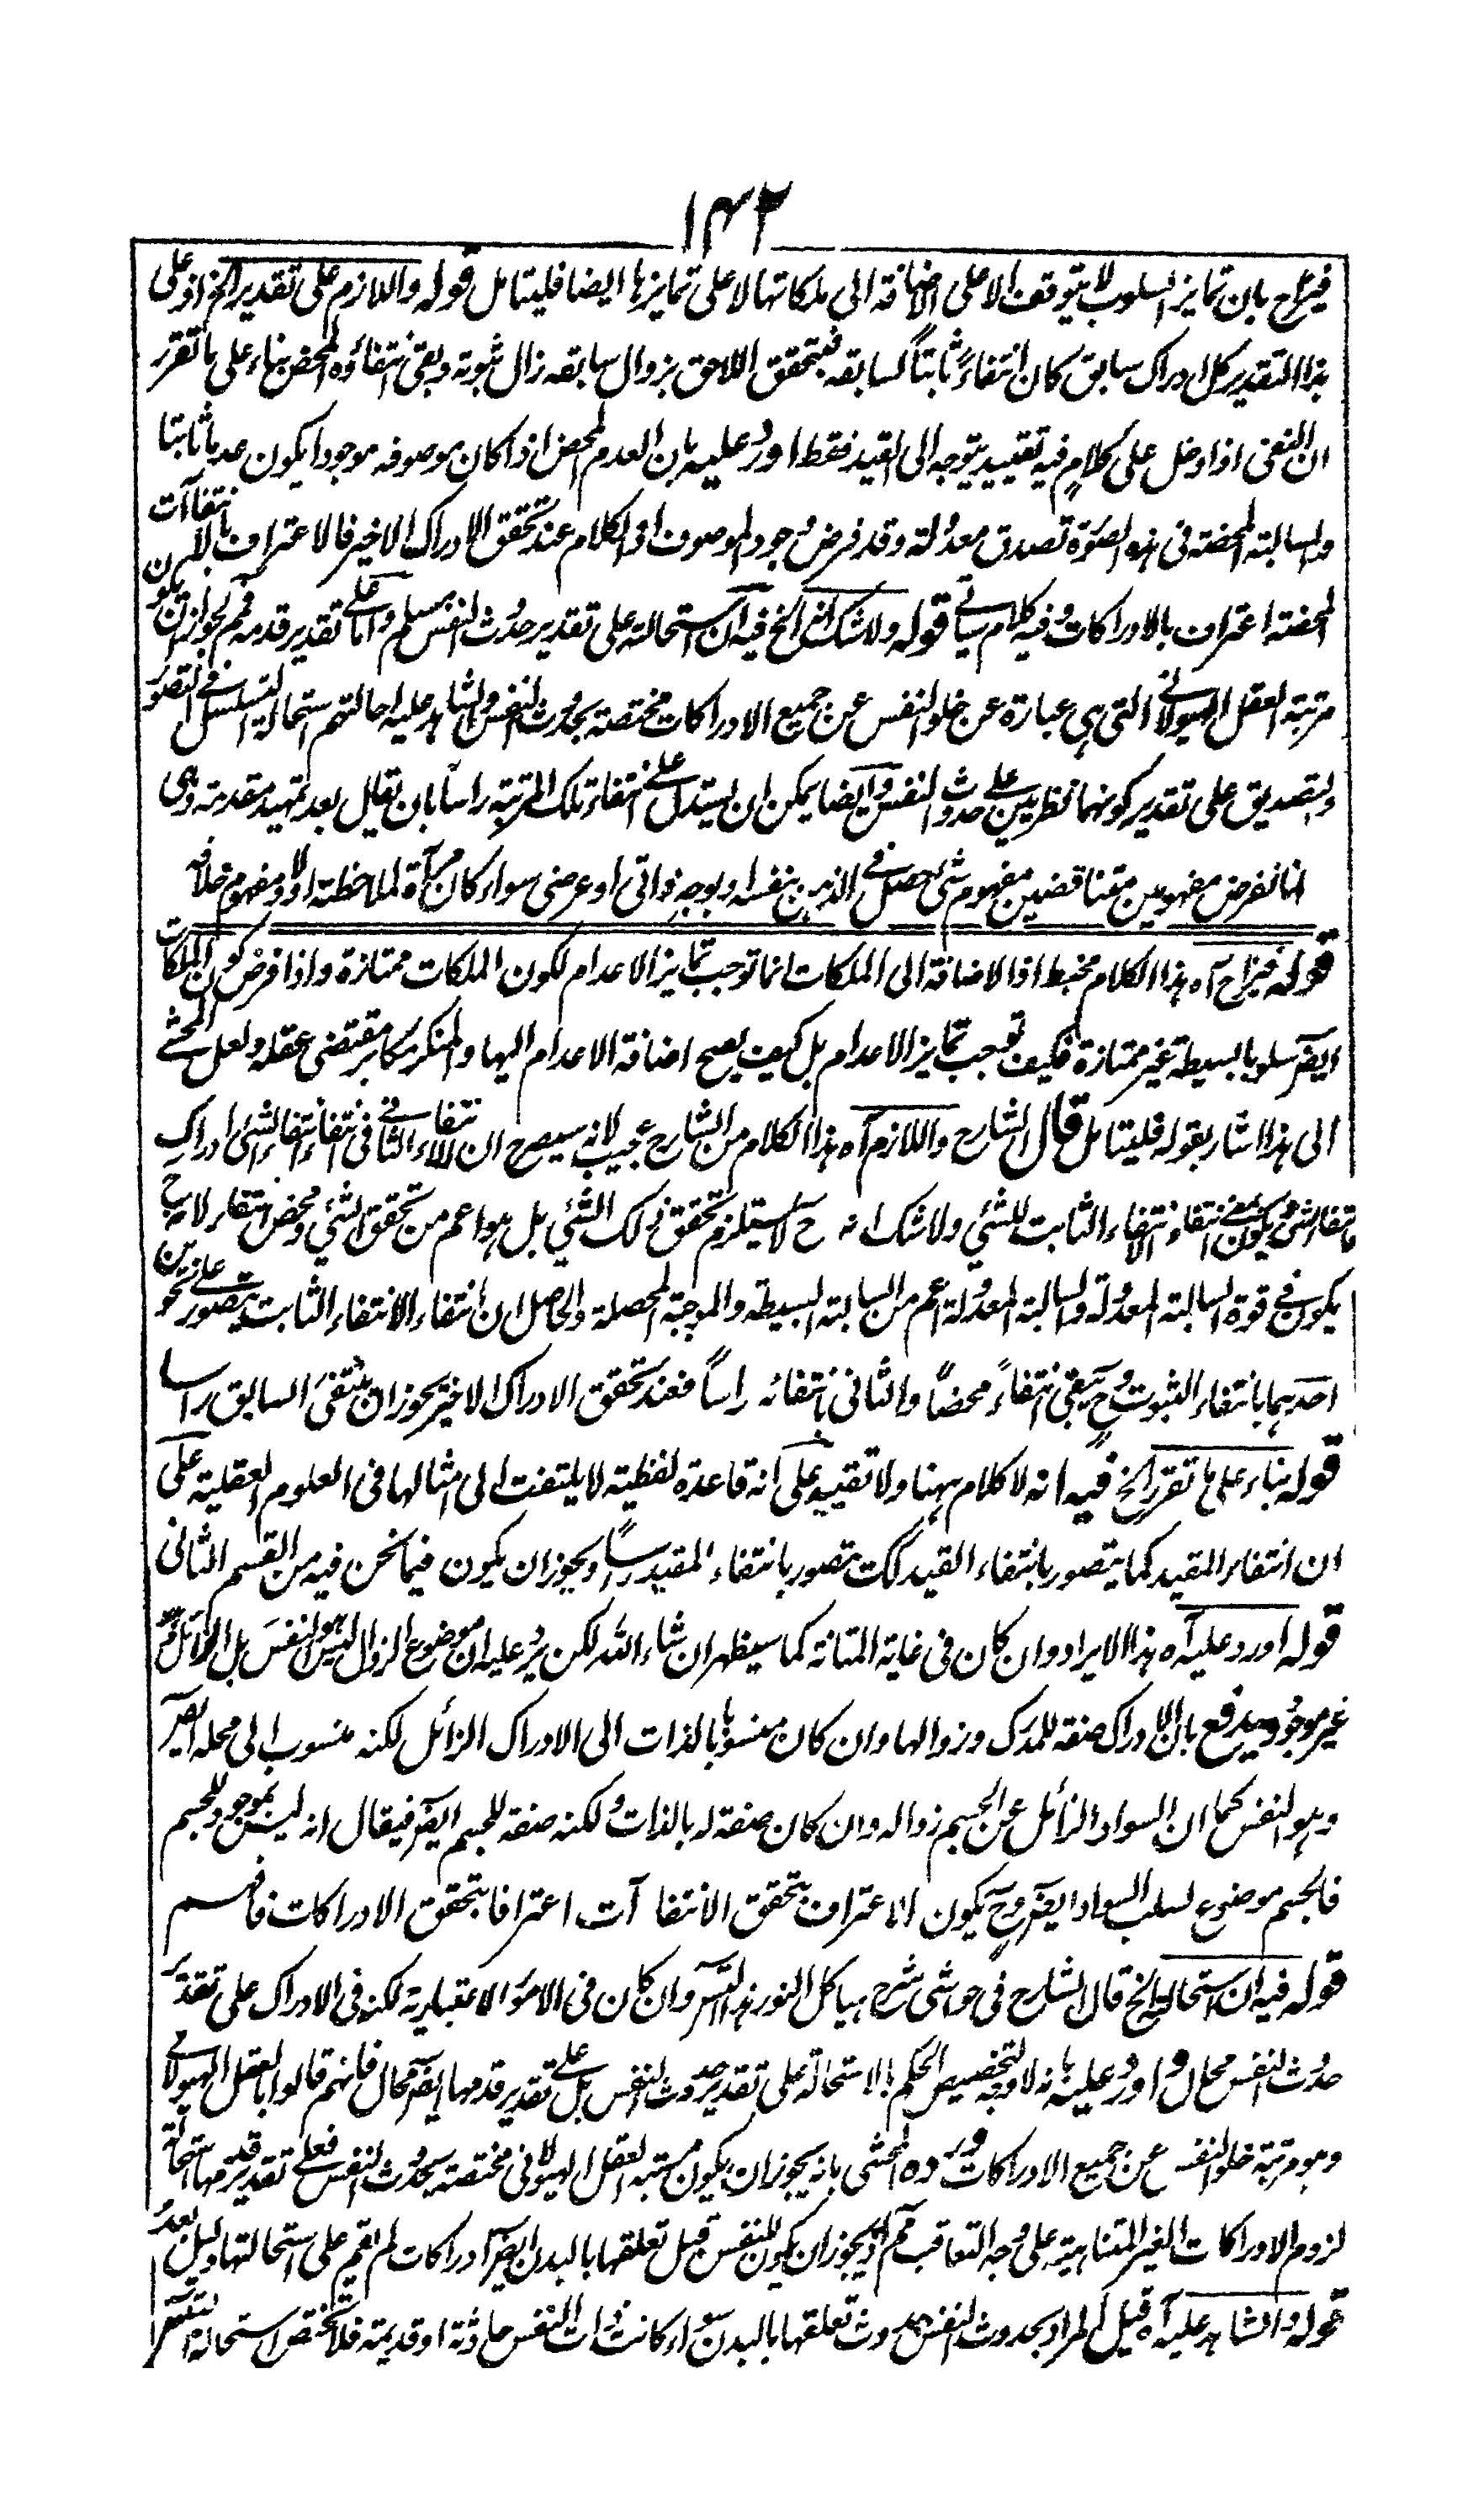 ١٣٢
فيزاح بان تمايز السلوب لا يتوقف الا على الاضافة الى ملكاتها لا على تمايزها ايضا فليتامل قوله واللازم على تقدير الخ اذ على
هذا التقدير كل ادراك سابق كان انتفاءً ثابتاً لسابقه فبتحقق اللاحق بزوال سابقه زال ثبوته وبقى انتفاؤه المحض بناء على ما تقرر
ان النفى اذا دخل على كلامٍ فيه تقييد يتوجه الى القيد فقط اورد عليه بان العدم المحض اذا كان موصوفه موجودا يكون عدما ثابتا
والسالبة المحضة فى هذه الصورة تصدق معدولة وقد فرض وجود الموصوف اذ الكلام عند تحقق الادراك الاخير فالاعتراف بالانتفاآت
المحضة اعتراف بالادراكات وفيه كلام سياتى قوله ولا شك الخ فيه ان استحالته على تقدير حدوث النفس مسلم واما على تقدير قدمه فمم لجواز ان يكون
مرتبة العقل الهيولانى التى هى عبارة عن خلو النفس عن جميع الادراكات مختصة بحدوث النفس والشاهد عليه احالتهم استحالة التسلسل فى التصور
والتصديق على تقدير كونهما نظريين على حدوث النفس وايضا يمكن ان يستدل على انتفاء تلك المرتبة راساً بان يقال بعد تمهيد مقدمة وهى
انا نفرض مفهومين متناقضين مفهوم شئ يحصل فى الذهن بنفسه او بوجه ذاتى او عرضى سواء كان مرآة لملاحظته اولا ومفهوم خلافه
قوله فيزاح آه هذا الكلام مخبط اذا الاضافة الى الملكات انما توجب تمايز الاعدام لكون الملكات ممتازة واذا فرض كون الملكات
ايضا سلوبا بسيطة غير ممتازة فكيف توجب تمايز الاعدام بل كيف يصح اضافة الاعدام اليها والمنكر مكابر مقتضى عقله ولعل المحشى
الى هذا اشار بقوله فليتامل قال الشارح واللازم آه هذا الكلام من الشارح عجيب لانه سيصرح ان الانتفاء الثانى فى انتفاء انتفاء الشئ ادراك
انتفاء الشئ ويكون معنى انتفاء الانتفاء الثابت للشئ ولا شك انه ح لا يستلزم تحقق ذلك الشئ بل هو اعم من تحقق الشئ ومحض انتفاء لانه ح
يكون فى قوة السالبة المعدولة والسالبة المعدولة اعم من السالبة البسيطة والموجبة المحصلة والحاصل ان انتفاء الانتفاء الثابت يتصور على نحوين
احدهما بانتفاء الثبوت وح يبقى انتفاءً محضاً والثانى بانتفائه راساً فعند تحقق الادراك الاخير يجوز ان ينتفى السابق راسا
قوله بناء على ما تقرر الخ فيه انه لا كلام ههنا ولا تقييد على انه قاعدة لفظية لا يلتفت الى امثالها فى العلوم العقلية على
ان انتفاء المقيد كما يتصور بانتفاء القيد كك يتصور بانتفاء المقيد راسا ويجوز ان يكون فيما نحن فيه من القسم الثانى
قوله اورد عليه آه هذا الايراد وان كان فى غاية المتانة كما سيظهر ان شاء الله لكن يرد عليه ان موضوع الزوال ليس هو النفس بل الزائل وهو
غير موجود ويدفع بان الادراك صفة للمدرك وزوالها وان كان منسوبا بالذات الى الادراك الزائل لكنه منسوب الى محله ايضا
وهو النفس كما ان السواد الزائل عن الجسم زواله وان كان صفة له بالذات ولكنه صفة للجسم ايضا فيقال انه ليس بموجود للجسم
فالجسم موضوع لسلب السواد ايضا وح يكون الاعتراف بتحقق الانتفاآت اعترافا بتحقق الادراكات فافهم
قوله فيه ان استحالة الخ قال الشارح فى حواشى شرح هياكل النور هذا التس وان كان فى الامور الاعتبارية لكنه فى الادراك على تقدير
حدوث النفس محال واورد عليه بانه لا وجه لتخصيص الحكم بالاستحالة على تقدير حدوث النفس بل على تقدير قدمها ايضا محال فانهم قالوا بالعقل الهيولانى
وهو مرتبة خلو النفس عن جميع الادراكات ورده المحشى بانه يجوز ان يكون مرتبة العقل الهيولانى مختصة بحدوث النفس فعلى تقدير قدمها استحالة
لزوم الادراكات الغير المتناهية على وجه التعاقب مم اذ يجوز ان يكون للنفس قبل تعلقها بالبدن ايضا ادراكات لم يقم على استحالتها دليل بعد
قوله والشاهد عليه آه قيل المراد بحدوث النفس حدوث تعلقها بالبدن سواء كانت ذات النفس حادثة او قديمة فلا تختص استحالة التس